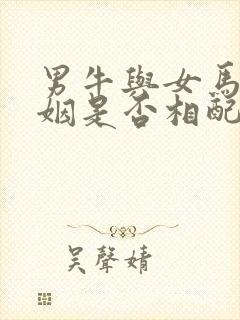 男牛與女馬
姻是否相配
吴聲婧